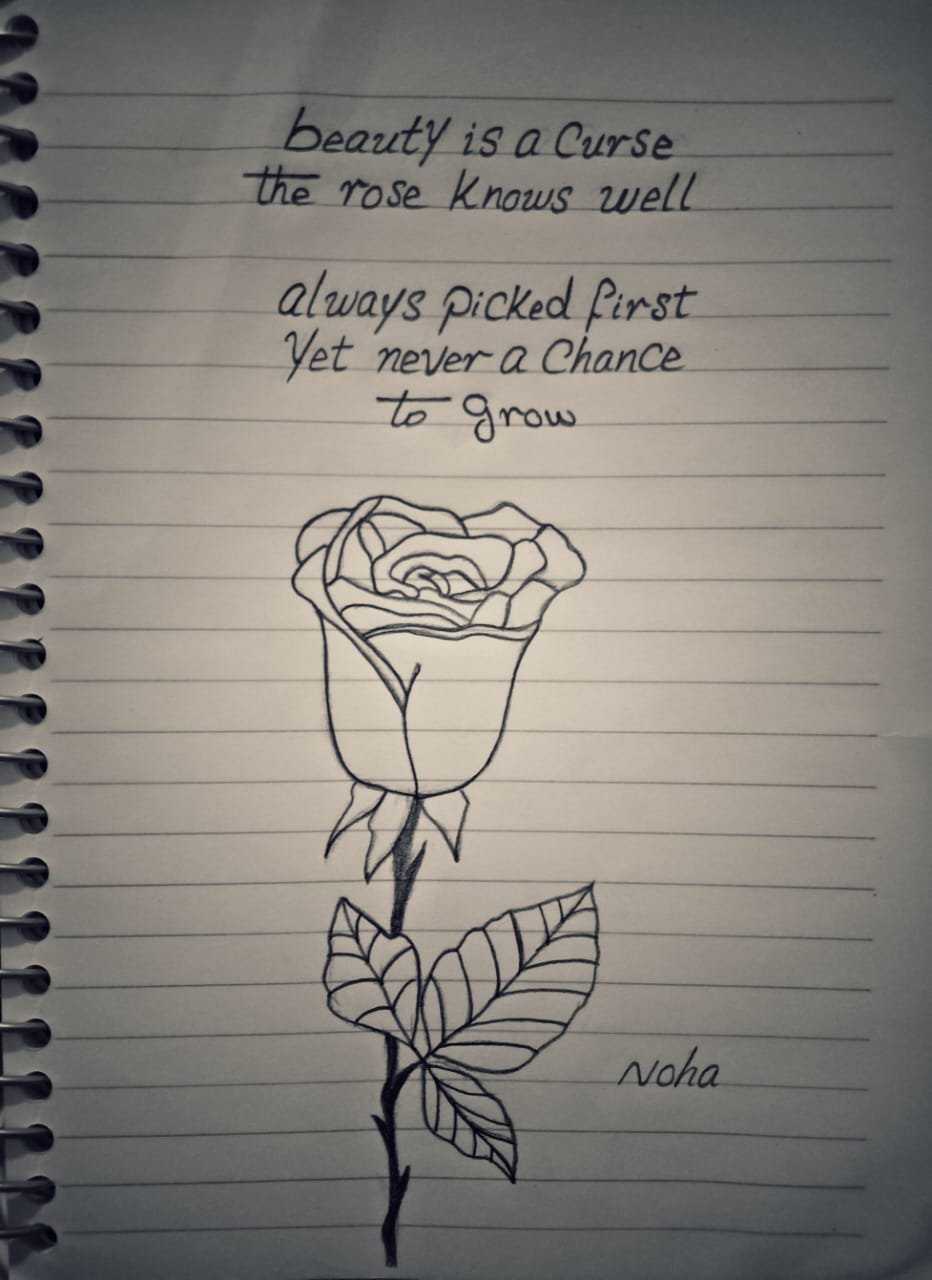 beauty is a Curse
the rose Knows well
always picked first
Yet never a Chance
to grow
Noha